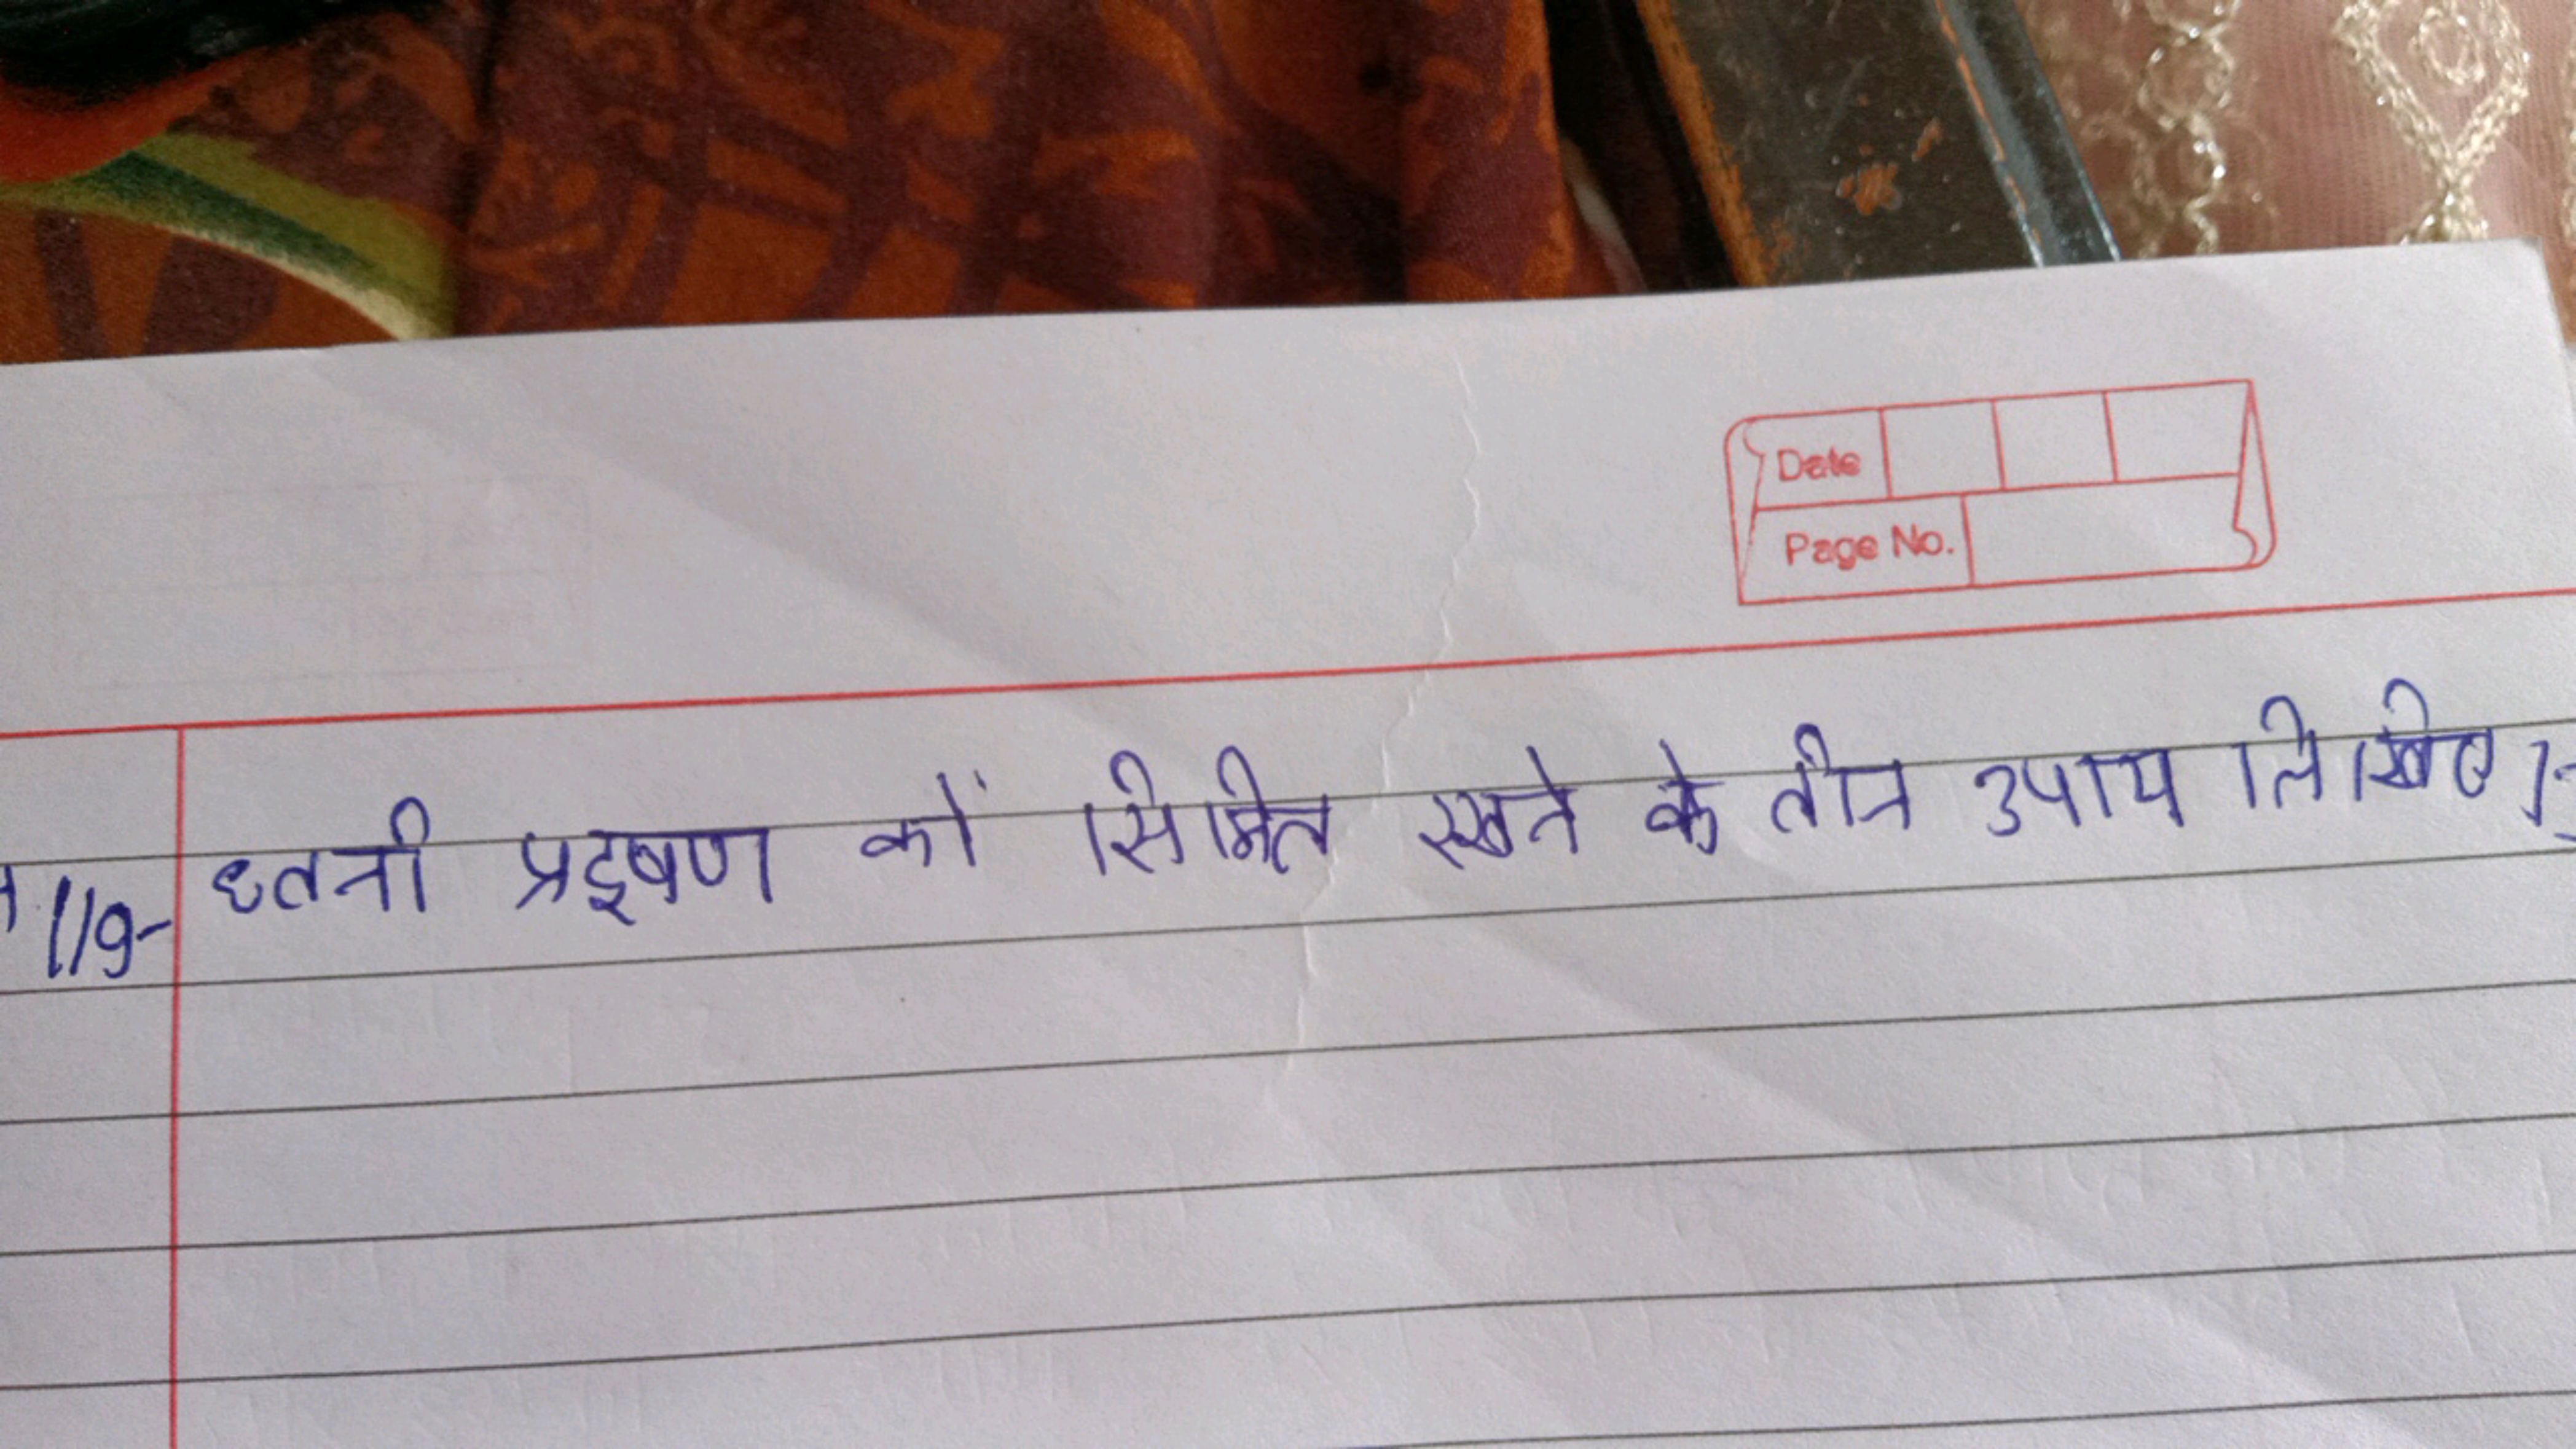 Date
Page No.
119- ध्वनी प्रदूषण कों सिमित रखने के तीन उपाय लिखिए।